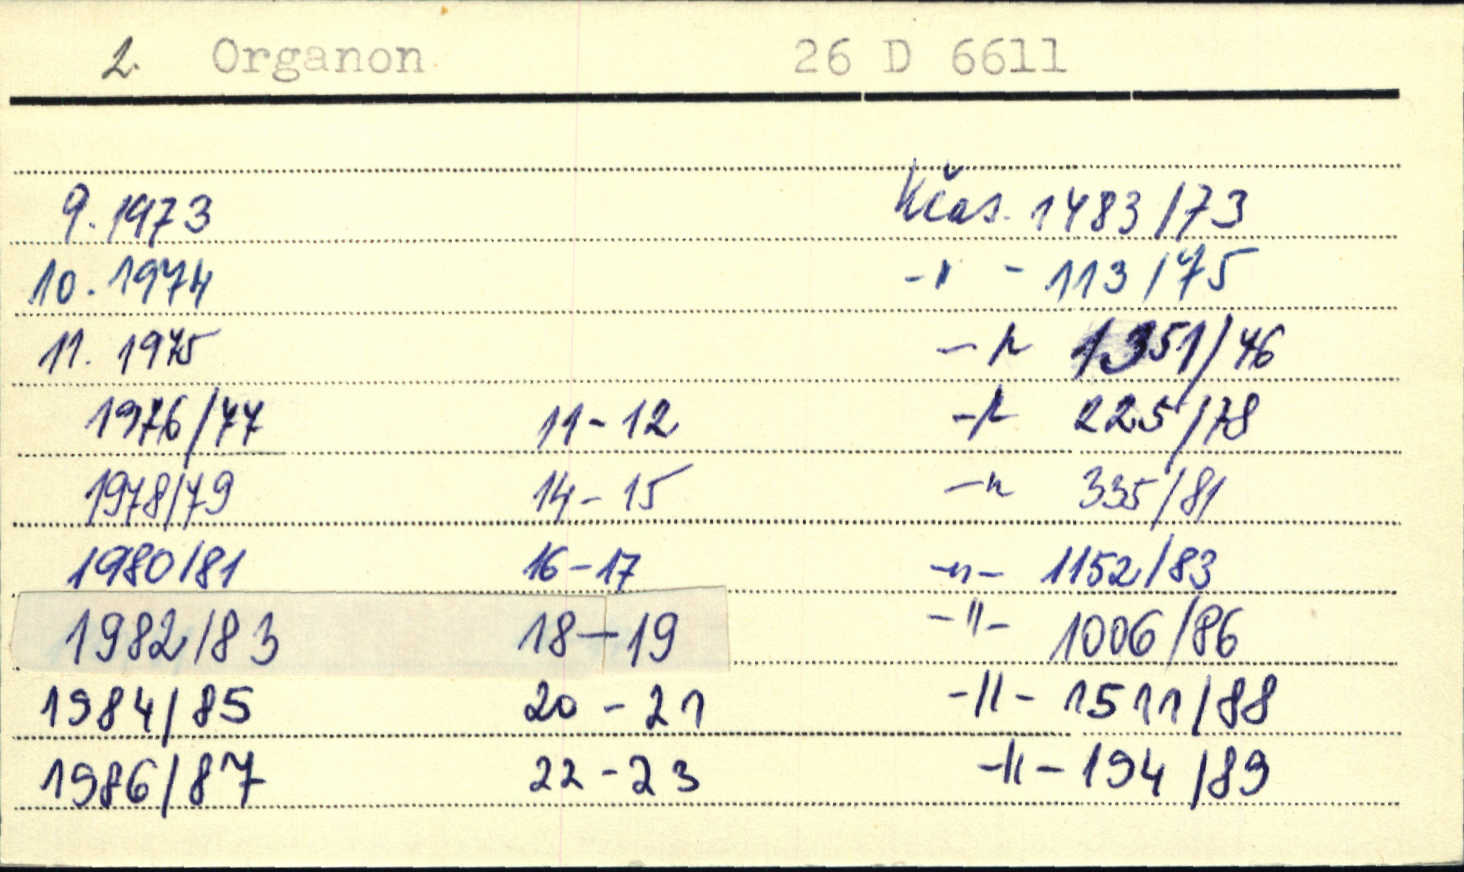 2. Organon 26 D 6611
9. 1973 Kčas. 1483/73
10. 1974 -"- 113/75
11. 1975 -"- 1351/76
1976/77 11-12 -"- 225/78
1978/79 14-15 -"- 335/81
1980/81 16-17 -"- 1152/83
1982/83 18-19 -"- 1006/86
1984/85 20-21 -"- 1511/88
1986/87 22-23 -"- 194/89